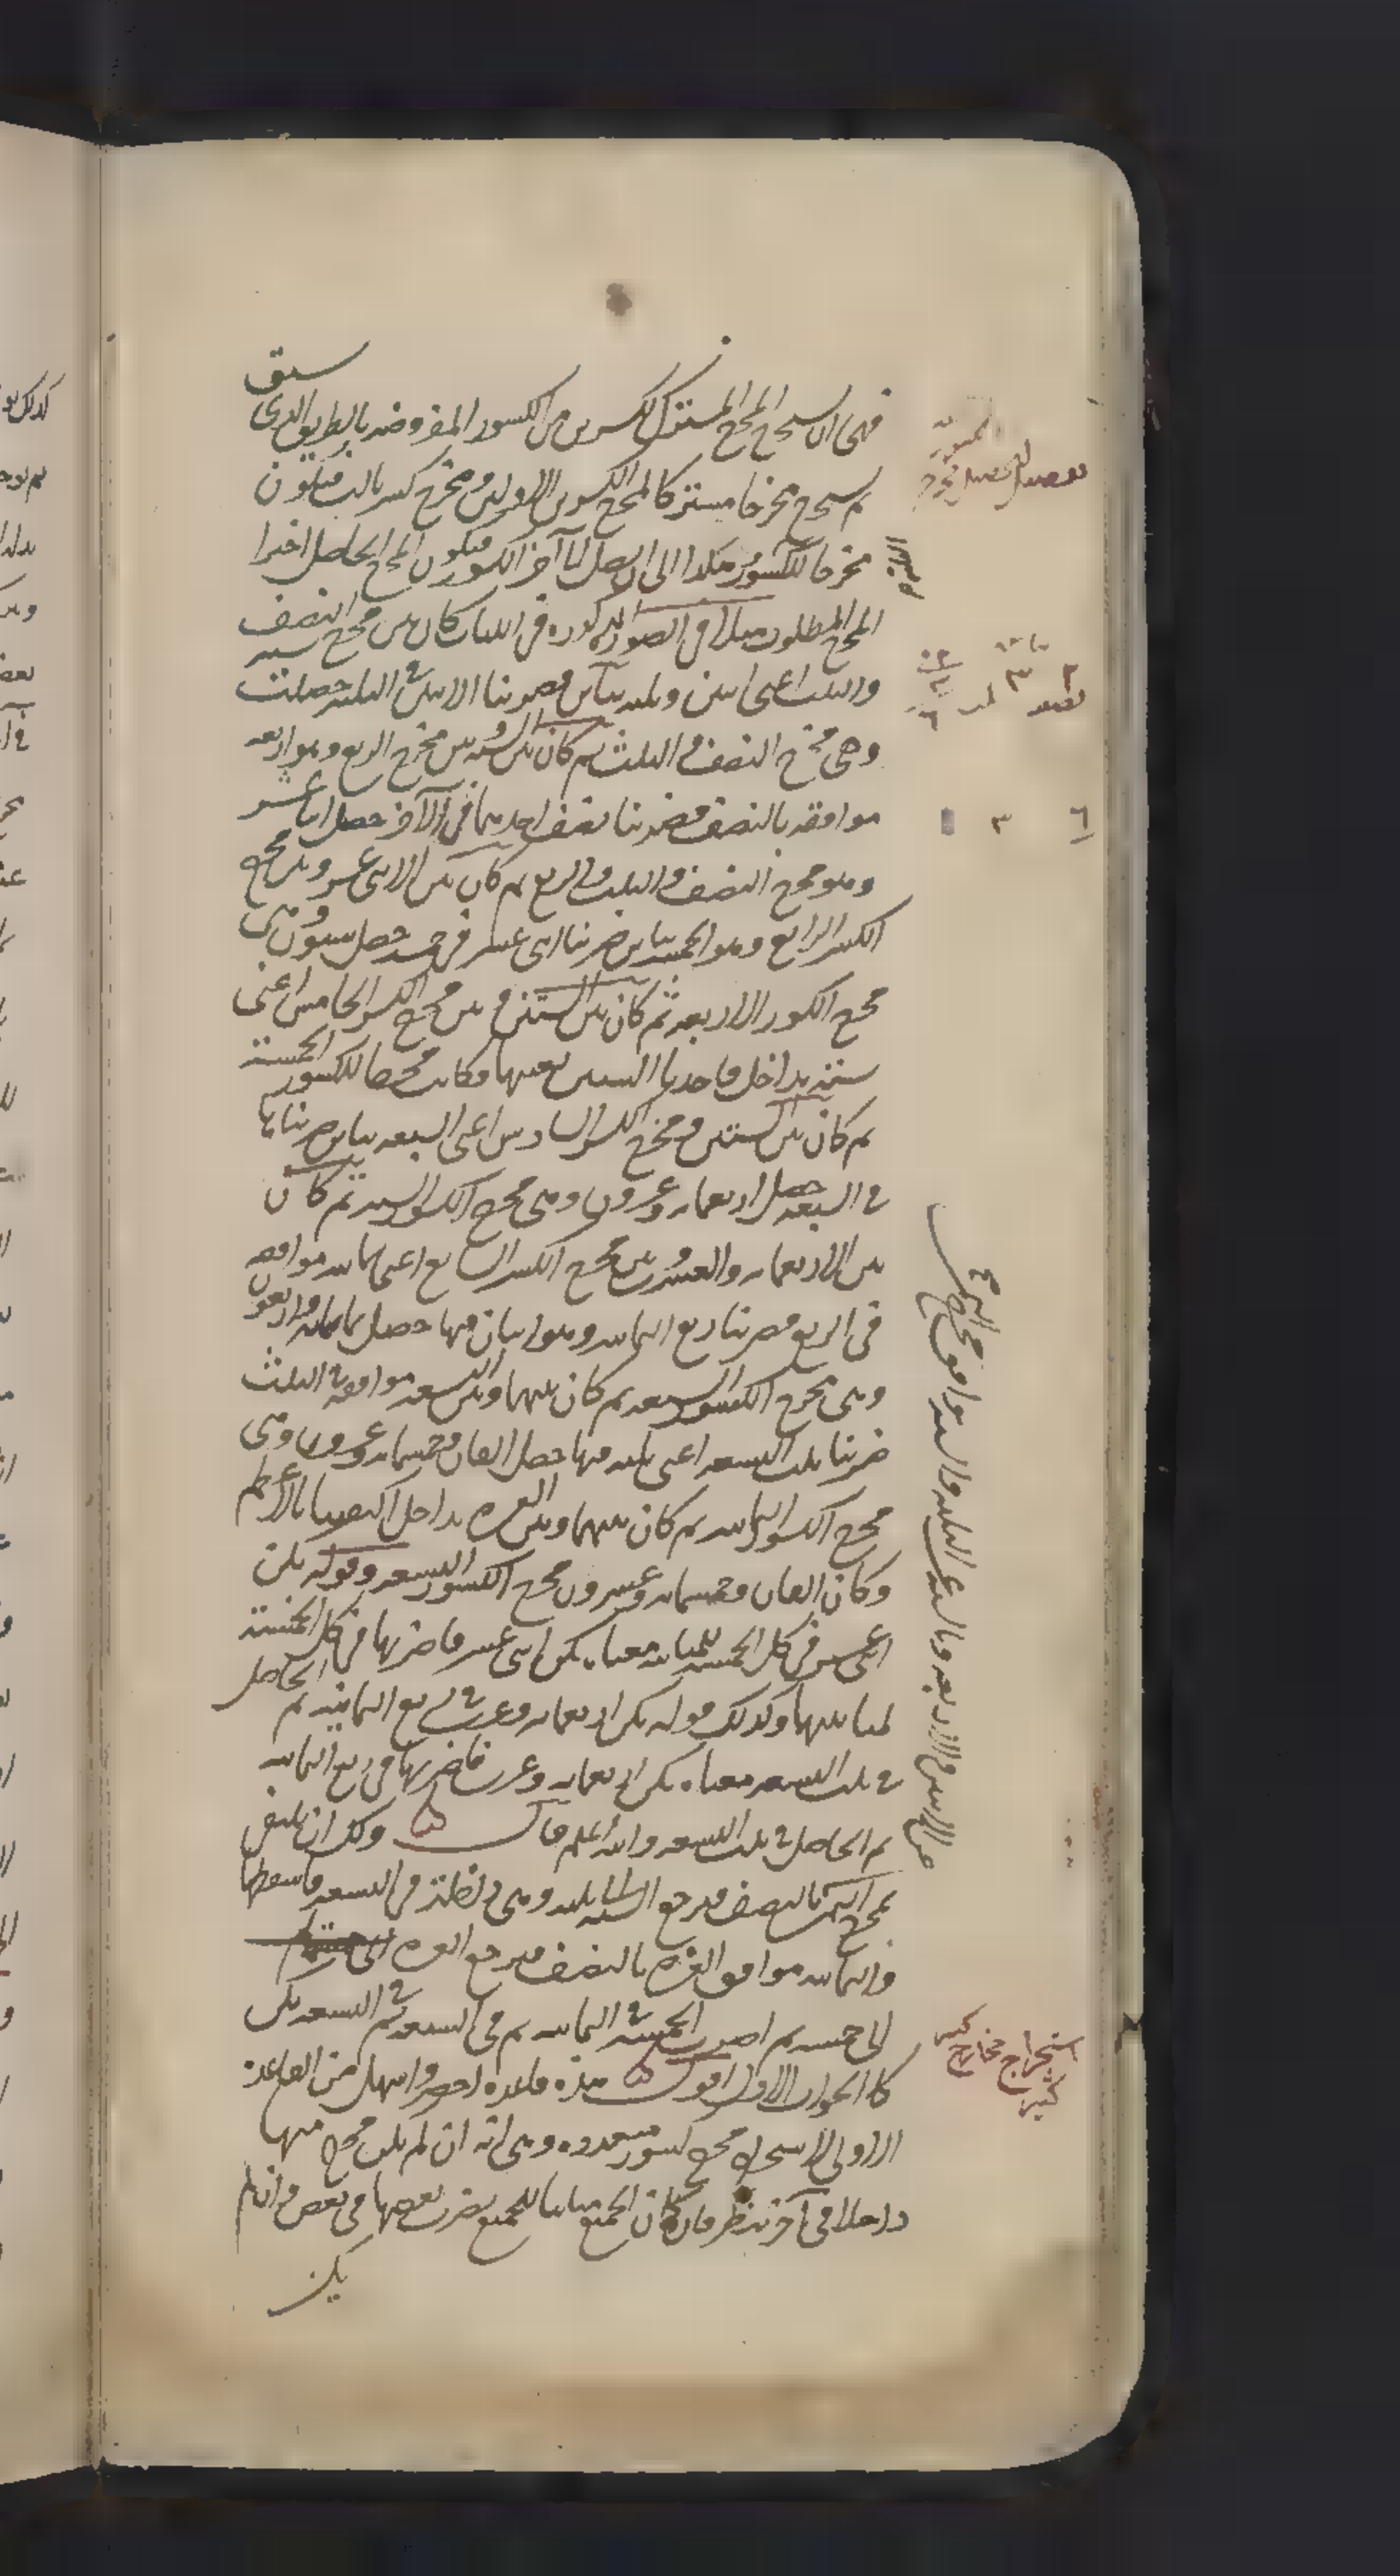 فهى ان يستخرج المخرج المشترك لكسرين من الكسور المفروضة بالطريق الذى سبق
ثم يستخرج مخرجا مشتركا لمخرج الكسرين الاولين ومخرج كسر ثالث فيكون
مخرجا للكسور هكذا الى ان يصل الى آخر الكسور فيكون المخرج الحاصل اخيرا
المخرج المطلوب مثلا فى الصورة المذكورة فى الكتاب كان بين مخرج النصف
والثلث اعنى اثنين وثلثة تباين فضربنا الاثنين فى الثلثة حصلت ستة
وهى مخرج النصف والثلث ثم كان بين الستة وبين مخرج الربع وهو اربعة
موافقة بالنصف فضربنا نصف احديهما فى الآخر حصل اثنا عشر
وهو مخرج النصف والثلث والربع ثم كان بين الاثنى عشر وبين مخرج
الكسر الرابع وهو الخمسة تباين ضربنا اثنى عشر فى خمسة حصل ستون وهى
مخرج الكسور الاربعة ثم كان بين الستين وبين مخرج الكسر الخامس اعنى
ستة تداخل فاخذنا الستين بعينها فكانت مخرجا للكسور الخمسة
ثم كان بين الستين ومخرج الكسر السادس اعنى السبعة تباين ضربناها
فى السبعة حصل اربعمائة وعشرون وهى مخرج الكسور الستة ثم كان
بين الاربعمائة والعشرين وبين مخرج الكسر السابع اعنى ثمانية موافقة
فى الربع فضربنا ربع الثمانية وهو اثنان فيها حصل ثمانمائة واربعون
وهى مخرج الكسور السبعة ثم كان بينها وبين التسعة موافقة فى الثلث
ضربنا ثلث التسعة اعنى ثلثة فيها حصل الفان وخمسمائة وعشرون وهى
مخرج الكسور الثمانية ثم كان بينهما وبين العشرة تداخل اكتفينا بالاعظم
وكان الفان وخمسمائة وعشرون مخرج الكسور التسعة وقوله يكن
اثنى عشر فى كل الخمسة للمباينة معناه يكن اثنى عشر فاضربها فى كل الخمسة
لمباينتها وكذلك قوله يكن اربعمائة وعشرين فى ربع الثمانية ثم الحاصل
فى ثلث التسعة معناه يكن اربعمائة وعشرين فاضربها فى ربع الثمانية
ثم الحاصل فى ثلث التسعة والله اعلم قال ولك ان
بالنصف فيرجع الستة الى ثلثة وهى داخلة فى التسعة فاسقطها
والثمانية موافق العشرة بالنصف فيرجع العشرة
الى خمسة ثم اضرب الخمسة فى الثمانية ثم فى السبعة ثم فى التسعة يكن
كالجواب الاول اقول هذه قاعدة اخصر واسهل من القاعدة
الاولى لاستخراج مخرج كسور متعددة وهى انه ان لم يكن مخرج منها
داخلا فى آخر ننظر فان كان الجميع مباينا للجميع يضرب بعضها فى بعض وان لم
يكن
تفصيل لتحصيل مخرج
٢ ٣
٦
٦ ٣
استخراج مخارج كسر